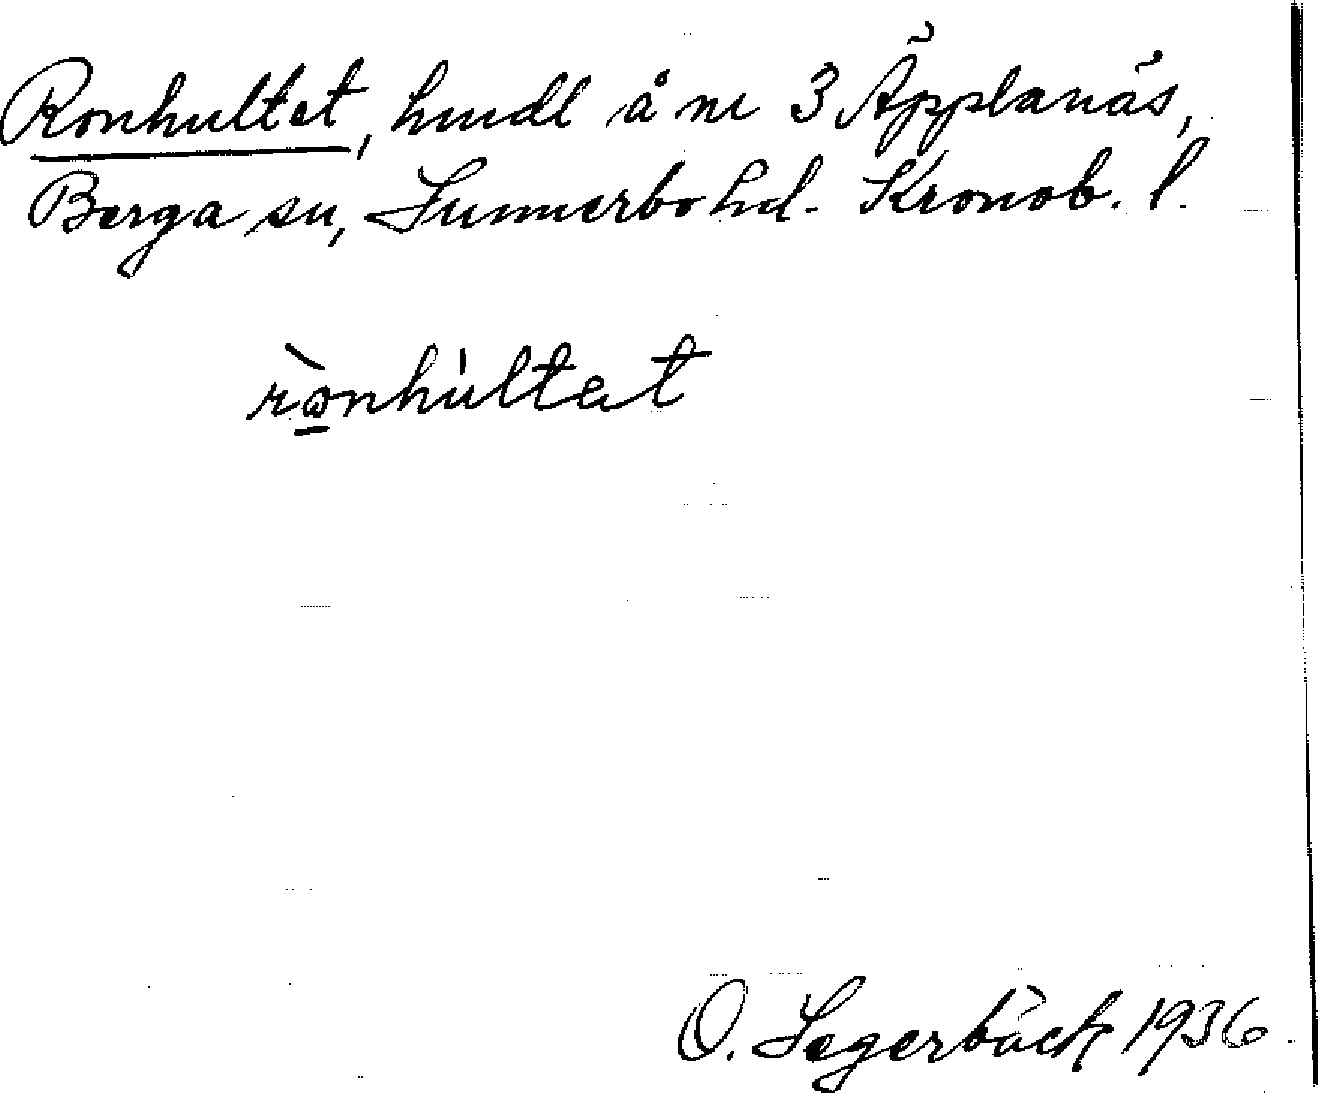 Ronhultet, hmdl å nr 3 Äpplanäs,
Berga sn, Sunnerbo hd. Kronob. l.
rònhúltat
O. Segerbäck 1936.